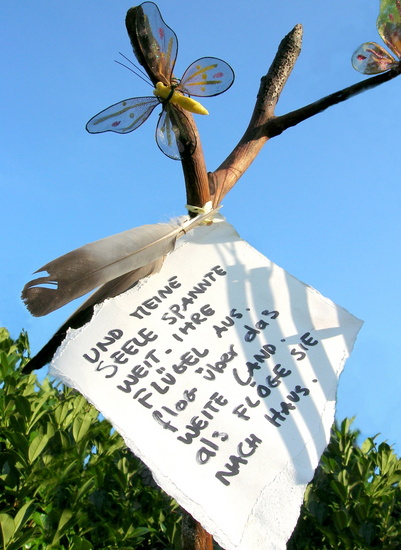 UND MEINE
SEELE SPANNTE
WEIT. IHRE
FLÜGEL AUS.
flog über das
WEITE LAND.
als FLOGE SIE
NACH HAUS.